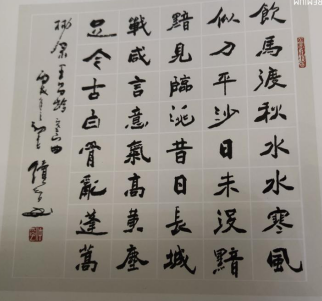 飲馬渡秋水水寒風
似刀平沙日未没黯
黯見臨洮昔日長城
戰咸言意氣高黄塵
足今古白骨亂蓬蒿